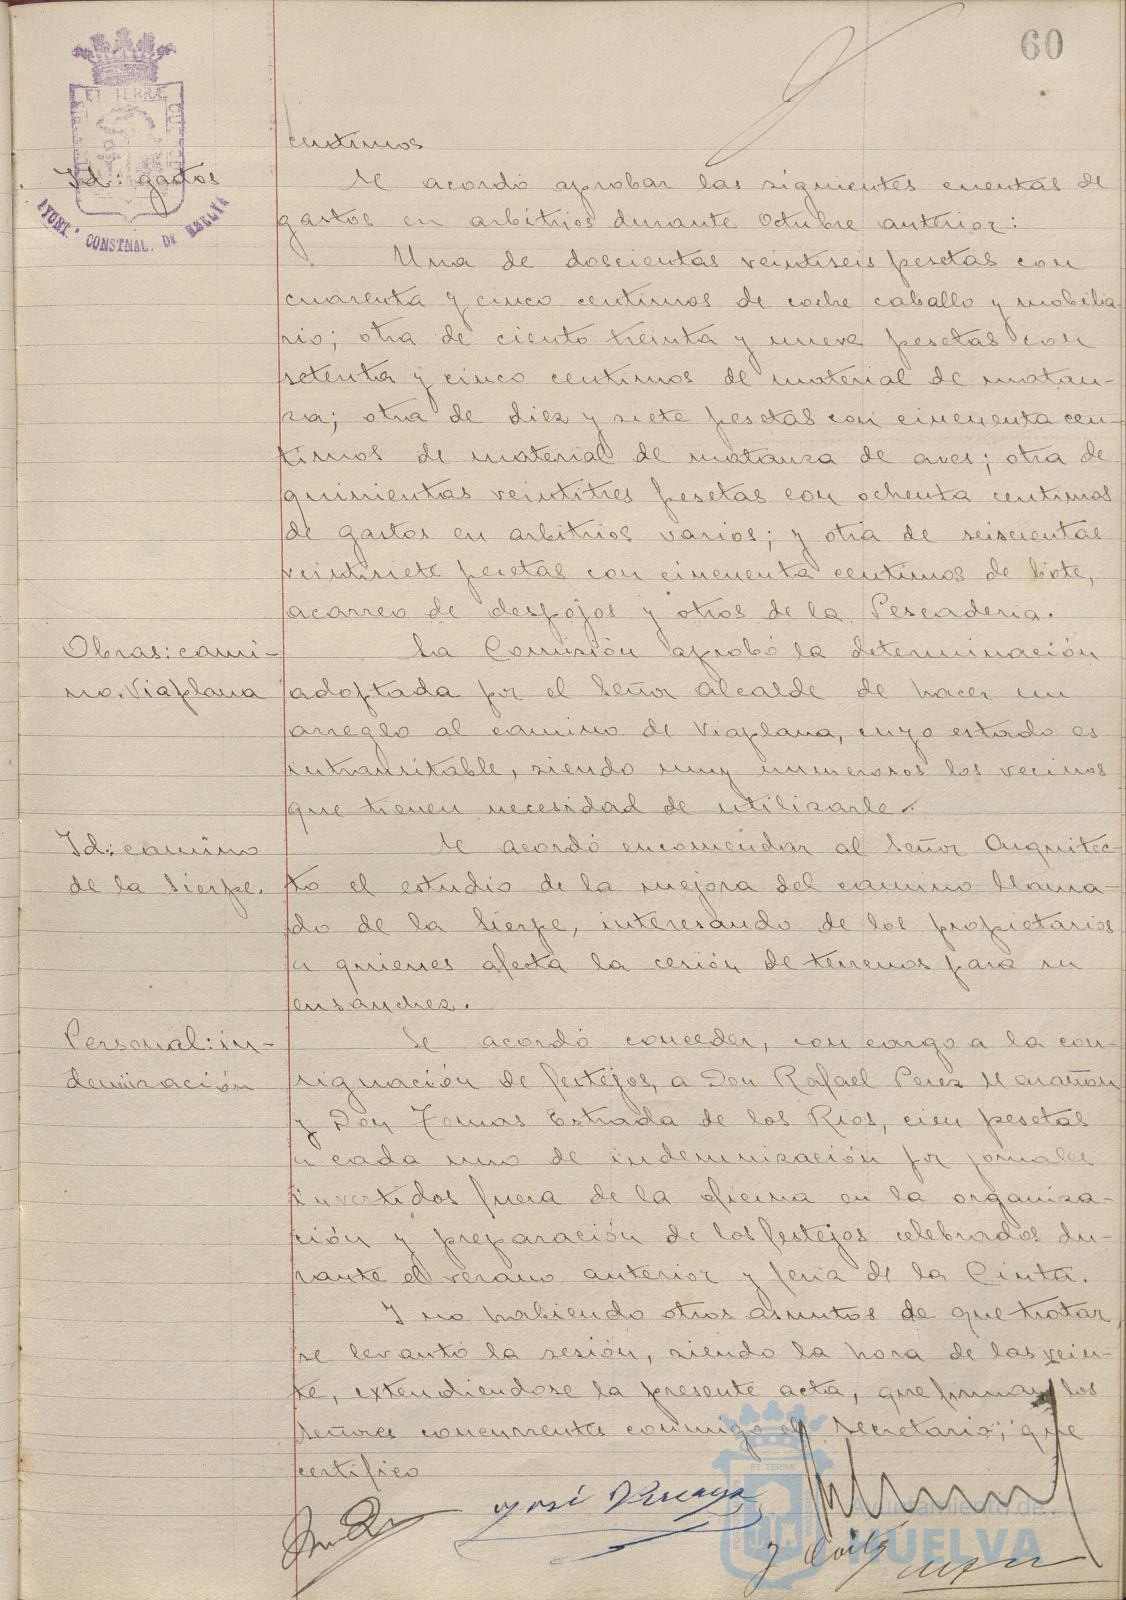 60
ET TERRÆ
AYUNT.º CONSTNAL. DE HUELVA
centimos
Id: gastos
Se acordó aprobar las siguientes cuentas de
gastos en arbitrios durante Octubre anterior:
Una de doscientas veintiseis pesetas con
cuarenta y cinco centimos de coche caballo y mobilia-
rio; otra de ciento treinta y nueve pesetas con
setenta y cinco centimos de material de matan-
za; otra de diez y siete pesetas con cincuenta cen-
timos de material de matanza de aves; otra de
quinientas veintitres pesetas con ochenta centimos
de gastos en arbitrios varios; y otra de seiscientas
veintisiete pesetas con cincuenta centimos de bote,
acarreo de despojos y otros de la Pescaderia.
Obras: cami-
no. Viaplana
La Comisión aprobó la determinación
adoptada por el Señor Alcalde de hacer un
arreglo al camino de Viaplana, cuyo estado es
intransitable, siendo muy numerosos los vecinos
que tienen necesidad de utilizarle.
Id: camino
de la Sierpe.
Se acordó encomendar al Señor Arquitec-
to el estudio de la mejora del camino llama-
do de la Sierpe, interesando de los propietarios
a quienes afecta la cesión de terrenos para su
ensanchez.
Personal: in-
demnización
Se acordó conceder, con cargo a la con-
signación de festejos, a Don Rafael Perez Marañon
y Don Tomas Estrada de los Rios, cien pesetas
a cada uno de indemnización por jornales
invertidos fuera de la oficina en la organiza-
ción y preparación de los festejos celebrados du-
rante el verano anterior y feria de la Cinta.
Y no habiendo otros asuntos de que tratar,
se levantó la sesión, siendo la hora de las vein-
te, extendiendose la presente acta, que firman los
Señores concurrentes conmigo el Secretario; que
certifico
José
Ayuntamiento de
HUELVA